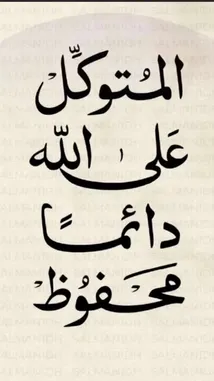 المُتوكِّلْ
عَلى اللّه
دائمًا
مَحْفُوظْ